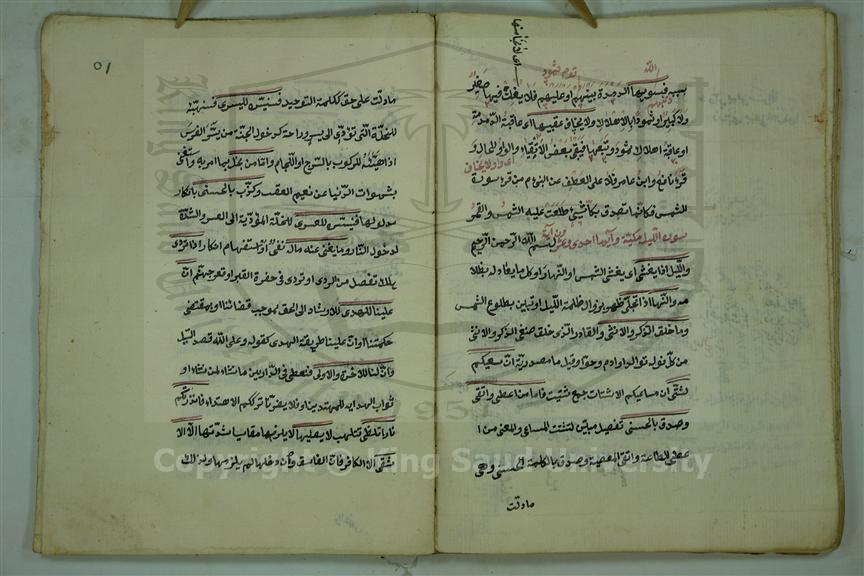 بسببه فسويها الدمدمة بينهم او عليهم فلا يفلت فيها صغير
ولا كبير او ثمود بالاهلاك ولا يخاف عقبيها اى عاقبة الدمدمة
او عاقبة اهلاك ثمود وتبعتها فيبقى بعض الابقاء والواو للحال و
قرء نافع وابن عامر فلا على العطف عن النبى م من قرء سورة
الشمس فكانما تصدق بكل شيئ طلعت عليه الشمس والقمر
سورة الليل مكية وآيها احدى وعشرون آية بسم الله الرحمن الرحيم
والليل اذا يغشى اى يغشى الشمس او النهار او كل ما يواريه بظلا
مه والنهار اذا تجلى ظهر بزوال ظلمة الليل او تبين بطلوع الشمس
وما خلق الذكر والانثى والقادر الذى خلق صنفى الذكر والانثى
من كل نوع له توالد او آدم وحوا وقيل ما مصدرية ان سعيكم
لشتى ان مساعيكم لاشتات جمع شتيت فاما من اعطى واتقى
وصدق بالحسنى تفصيل مبين لتشتت المساعى والمعنى من ا
عطى الطاعة واتقى المعصية وصدق بالكلمة الحسنى وهى
مادلت
٥١
مادلت على حق ككلمة التوحيد فسنيسره لليسرى فسنهيئه
للخلة التى تؤدى الى يسر وراحة كدخول الجنة من يسر الفرس
اذا هيئه للركوب بالسرج واللجام واما من بخل بما امر به واستغنى
بشهوات الدنيا عن نعيم العقبى وكذب بالحسنى بانكار
مدلولها فسنيسره للعسرى للخلة المؤدية الى العسر والشدة
لدخول النار وما يغنى عنه ماله نفى او استفهام انكار اذا تردى
هلك تفعل من الردى او تردى فى حفرة القبر او قعر جهنم ان
علينا للهدى للارشاد الى الحق بموجب قضائنا او بمقتضى
حكمتنا او ان علينا طريقة الهدى كقوله وعلى الله قصد السبيل
وان لنا للآخرة والاولى فنعطى فى الدارين ما نشاء لمن نشاء او
ثواب الهداية للمهتدين او فلا يضرنا ترككم الاهتداء فانذرتكم
نارا تلظى تتلهب لا يصليها لا يلزمها مقاسيا شدتها الا الا
شقى الا الكافر فان الفاسق وان دخلها لم يلزمها ولذلك
Copyright © King Saud University
1957